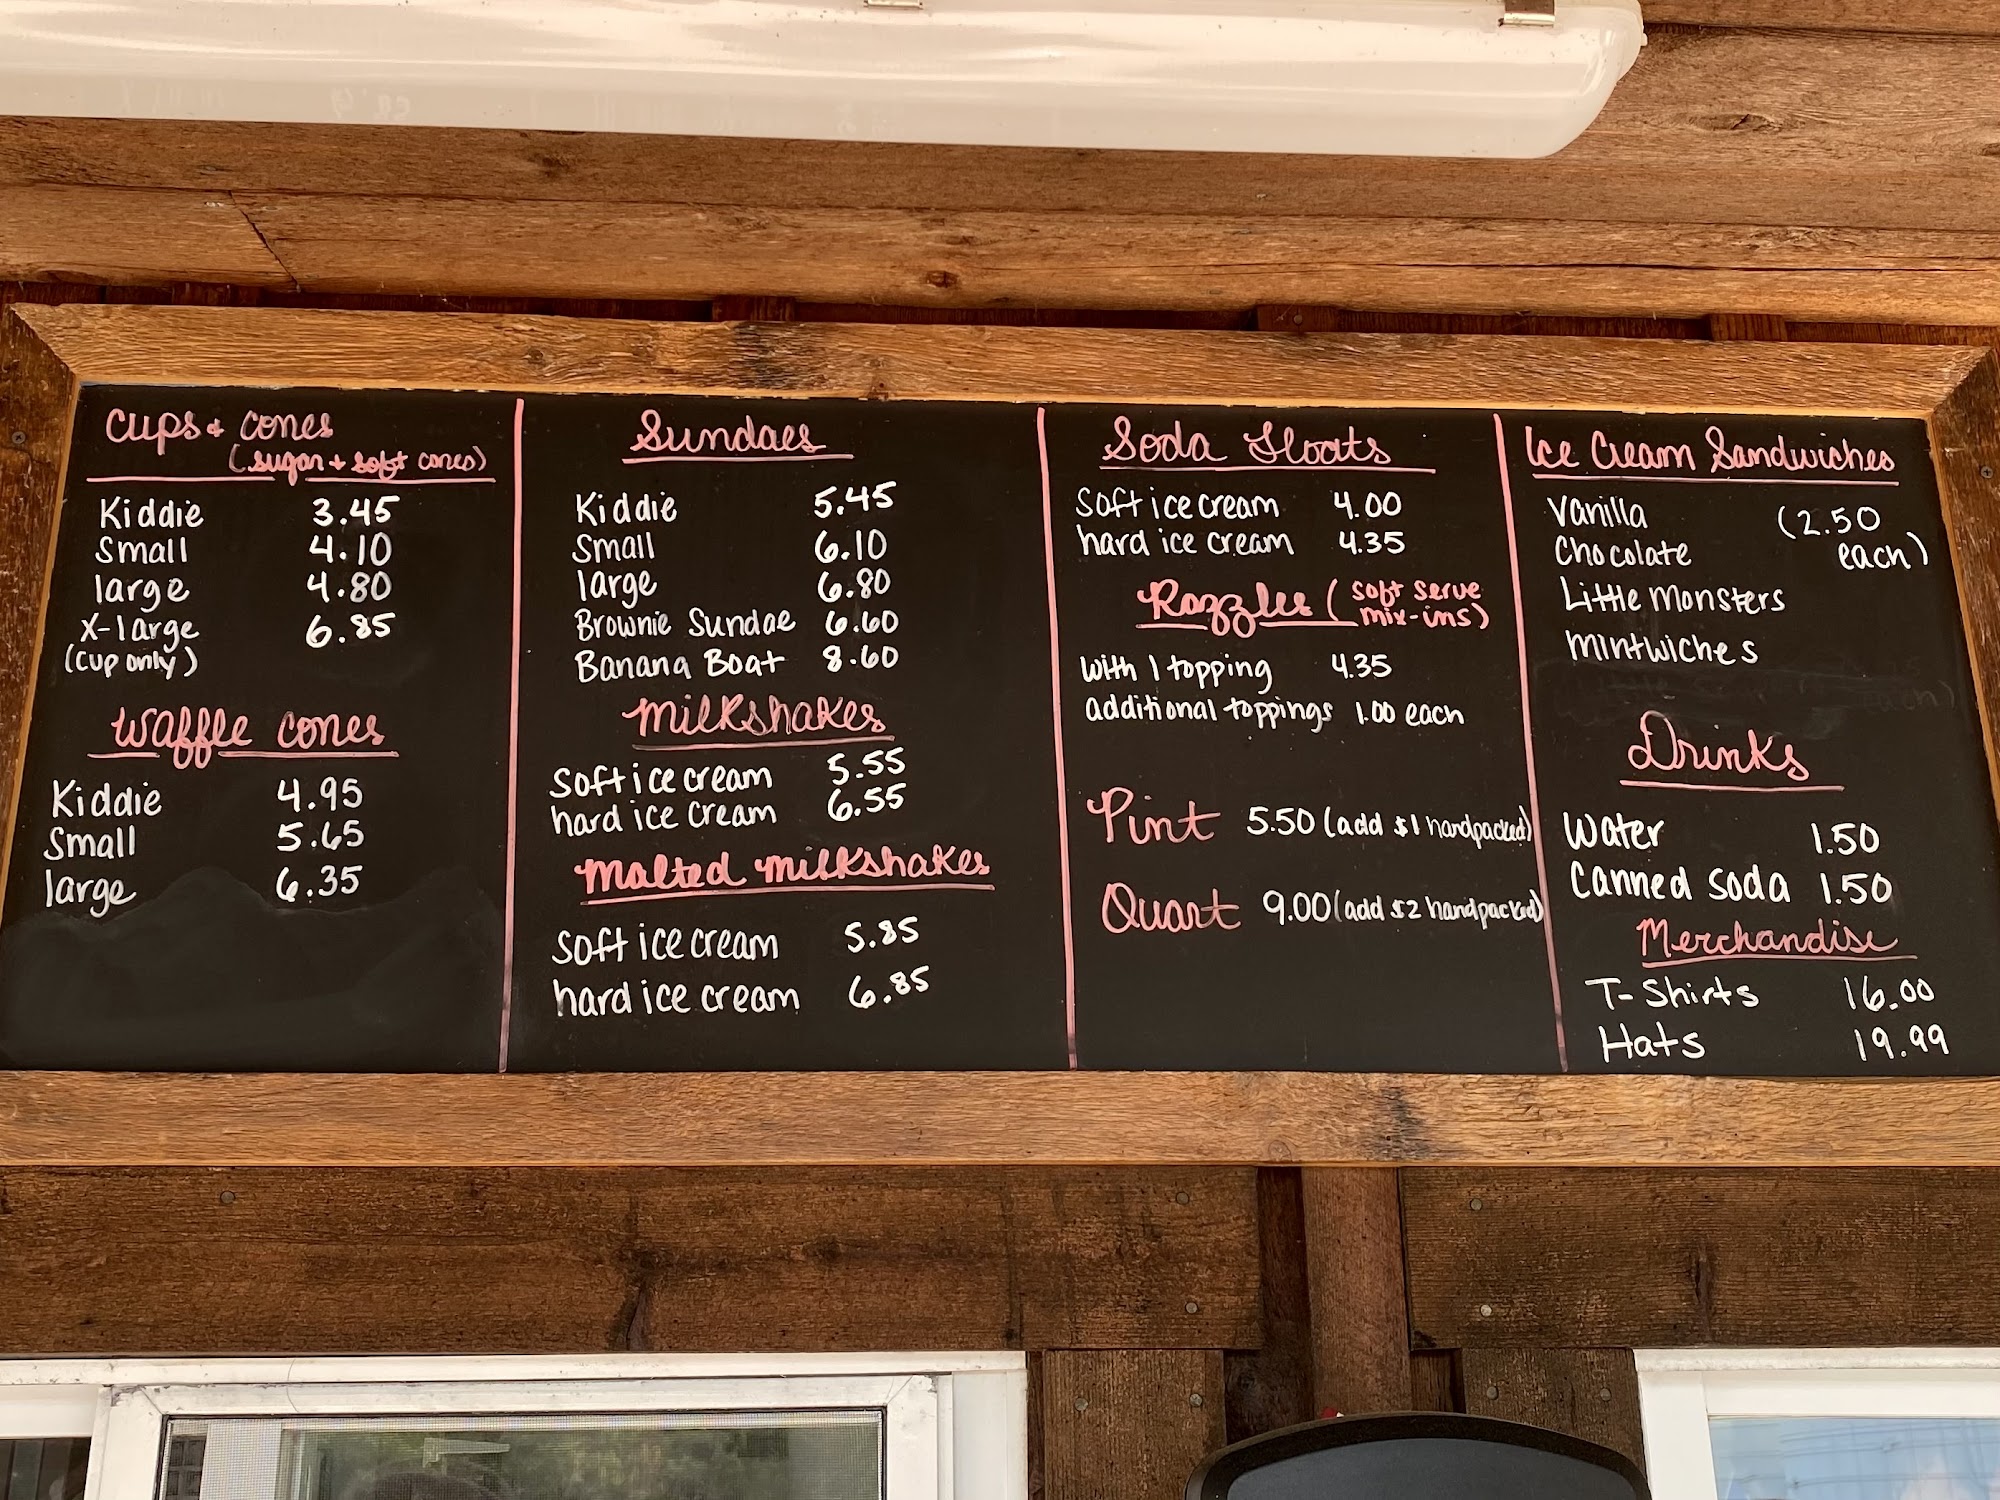 Cups & Cones
(sugar + soft cones)
Kiddie 3.45
Small 4.10
large 4.80
X-large 6.85
(cup only)
Waffle Cones
Kiddie 4.95
Small 5.65
large 6.35
Sundaes
Kiddie 5.45
Small 6.10
large 6.80
Brownie Sundae 6.60
Banana Boat 8.60
Milkshakes
Soft ice cream 5.55
hard ice cream 6.55
Malted Milkshakes
Soft ice cream 5.85
hard ice cream 6.85
Soda Floats
Soft ice cream 4.00
hard ice cream 4.35
Razzles (soft serve
mix-ins)
with 1 topping 4.35
additional toppings 1.00 each
Pint 5.50 (add $1 handpacked)
Quart 9.00 (add $2 handpacked)
Ice Cream Sandwiches
Vanilla (2.50
Chocolate each)
Little Monsters
Mintwiches
Drinks
Water 1.50
Canned Soda 1.50
Merchandise
T-Shirts 16.00
Hats 19.99